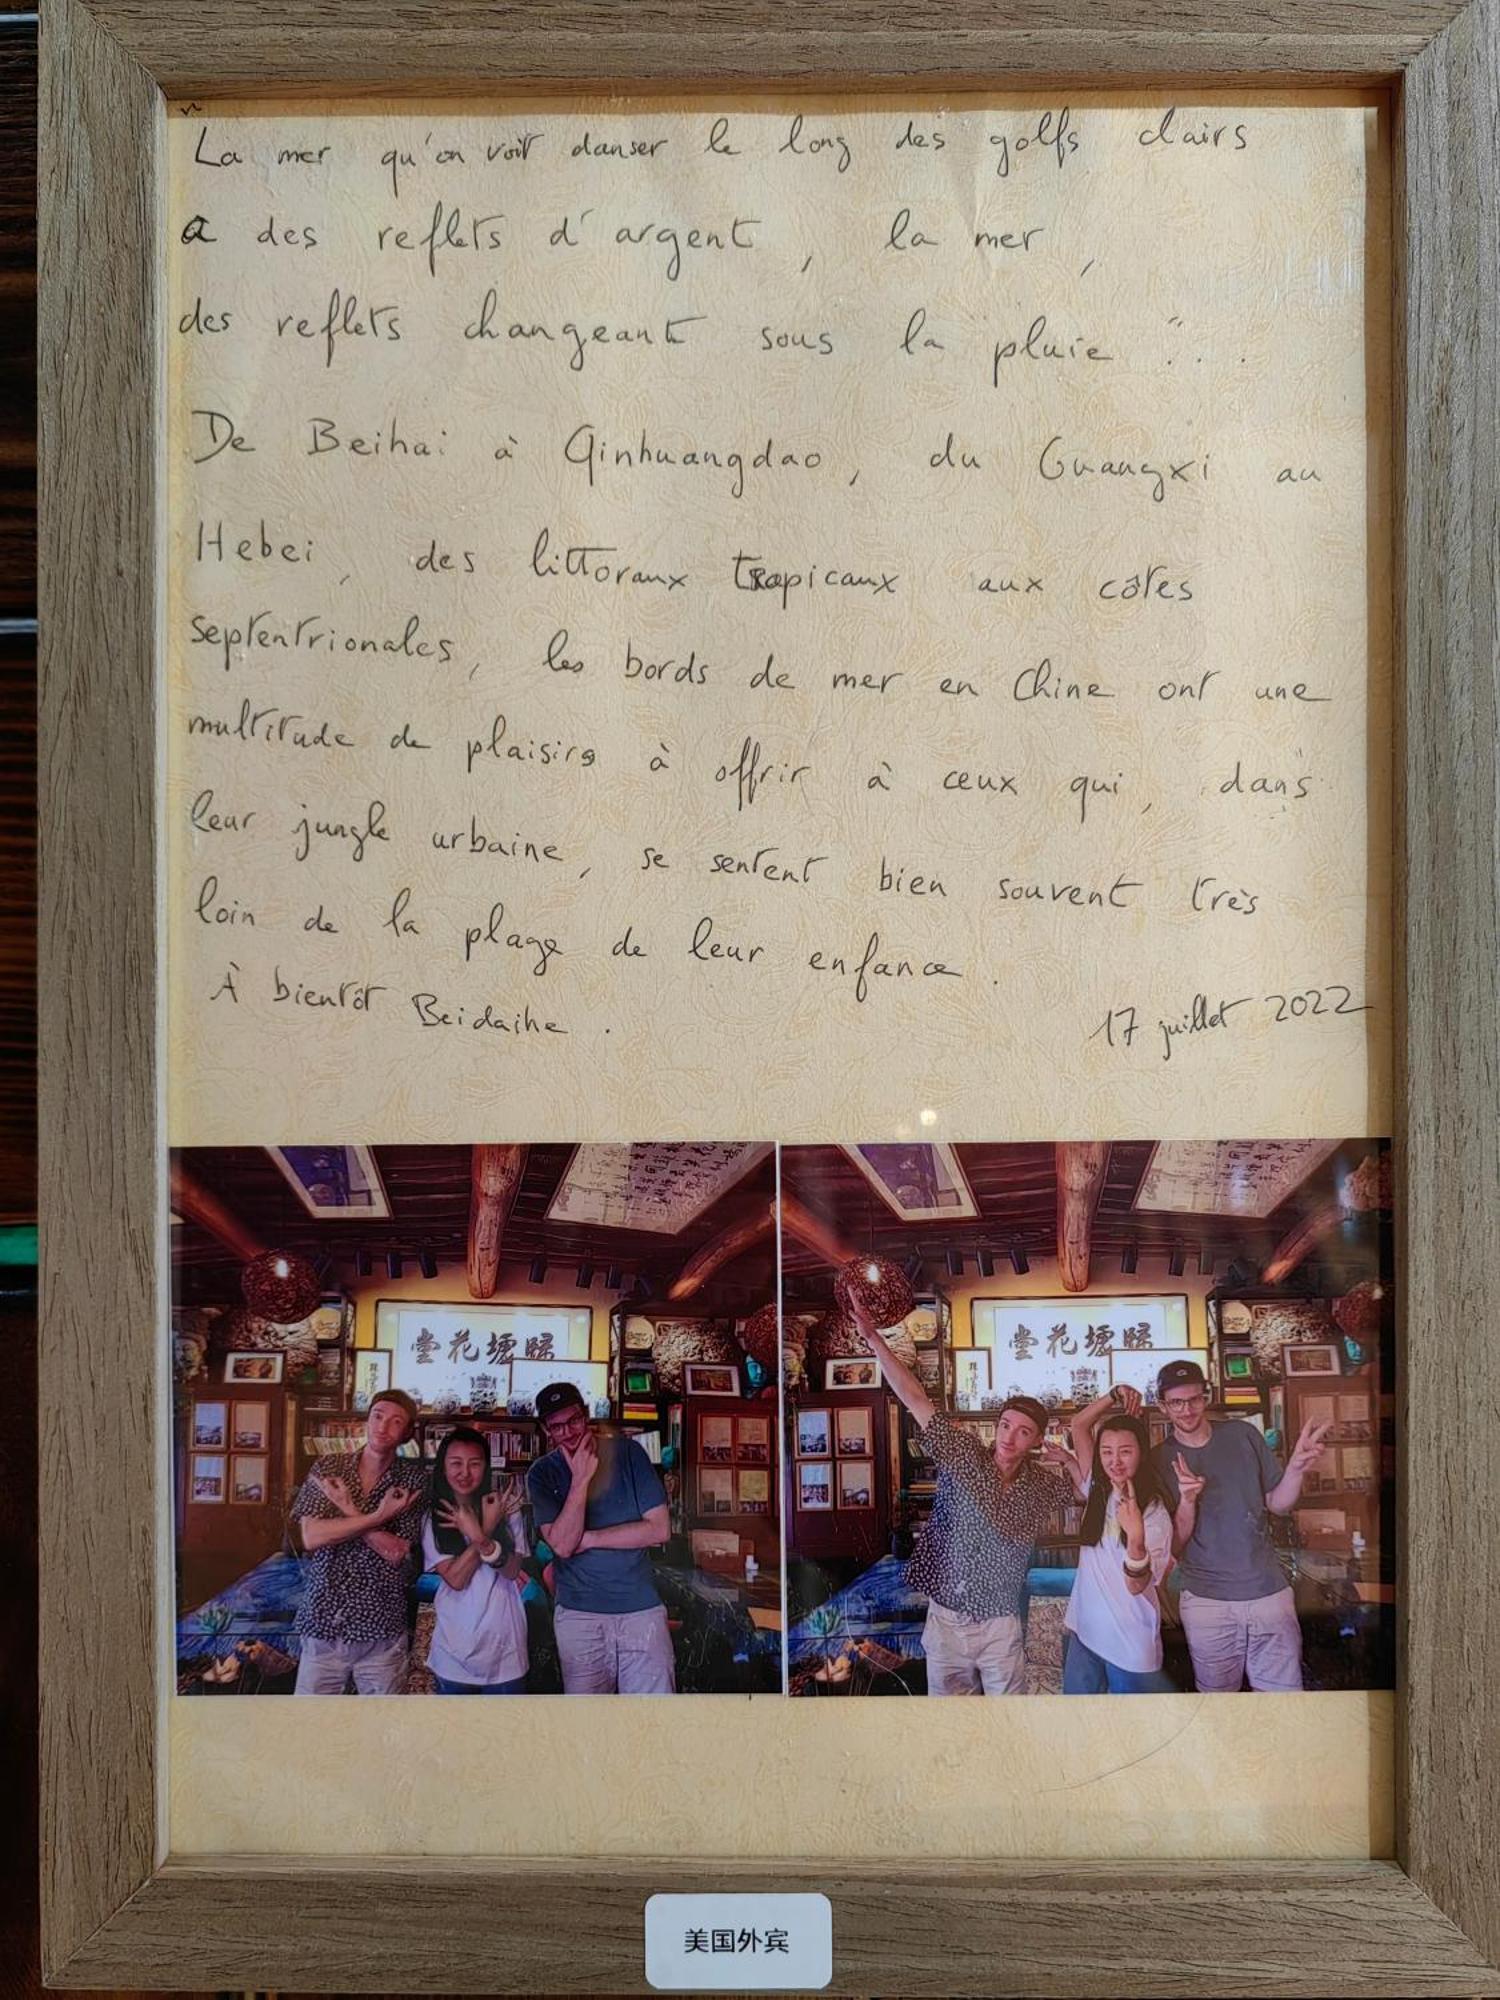 "
La mer qu'on voit danser le long des golfs clairs
a des reflets d'argent, la mer,
des reflets changeant sous la pluie"...
De Beihai à Qinhuangdao, du Guangxi au
Hebei, des littoraux tropicaux aux côtes
septentrionales, les bords de mer en Chine ont une
multitude de plaisirs à offrir à ceux qui, dans
leur jungle urbaine, se sentent bien souvent très
loin de la plage de leur enfance.
À bientôt Beidaihe.
17 juillet 2022
堂花塘歸
堂花塘歸
美国外宾